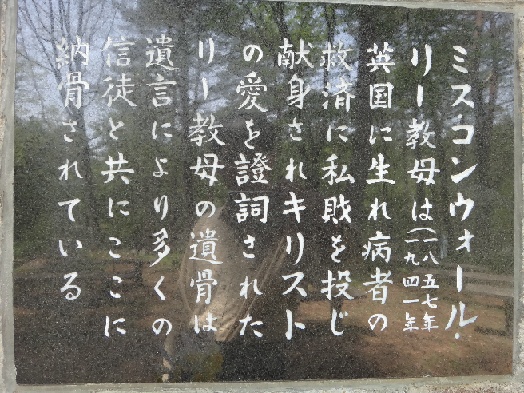 ミスコンウォール・
リー教母は(一八五七年
一九四一年
英国に生れ病者の
救済に私敗を投じ
献身されキリスト
の愛を證詞された
リー教母の遺骨は
遺言により多くの
信徒と共にここに
納骨されている